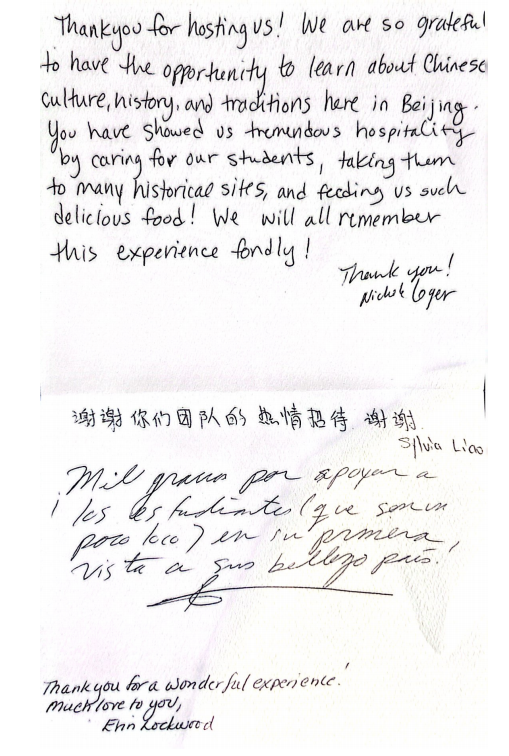 Thankyou for hosting us! We are so grateful
to have the opportunity to learn about Chinese
culture, history, and traditions here in Beijing.
You have showed us tremendous hospitality
by caring for our students, taking them
to many historical sites, and feeding us such
delicious food! We will all remember
this experience fondly!
Thank you!
Nichole
谢谢你们团队的热情招待 谢谢
Sylvia Liao
Mil gracias por apoyar a
los estudiantes (que son un
poco loco) en su primera
vista a sus bellezo país!
Thank you for a wonderful experience!
Much love to you,
Erin Lockwood